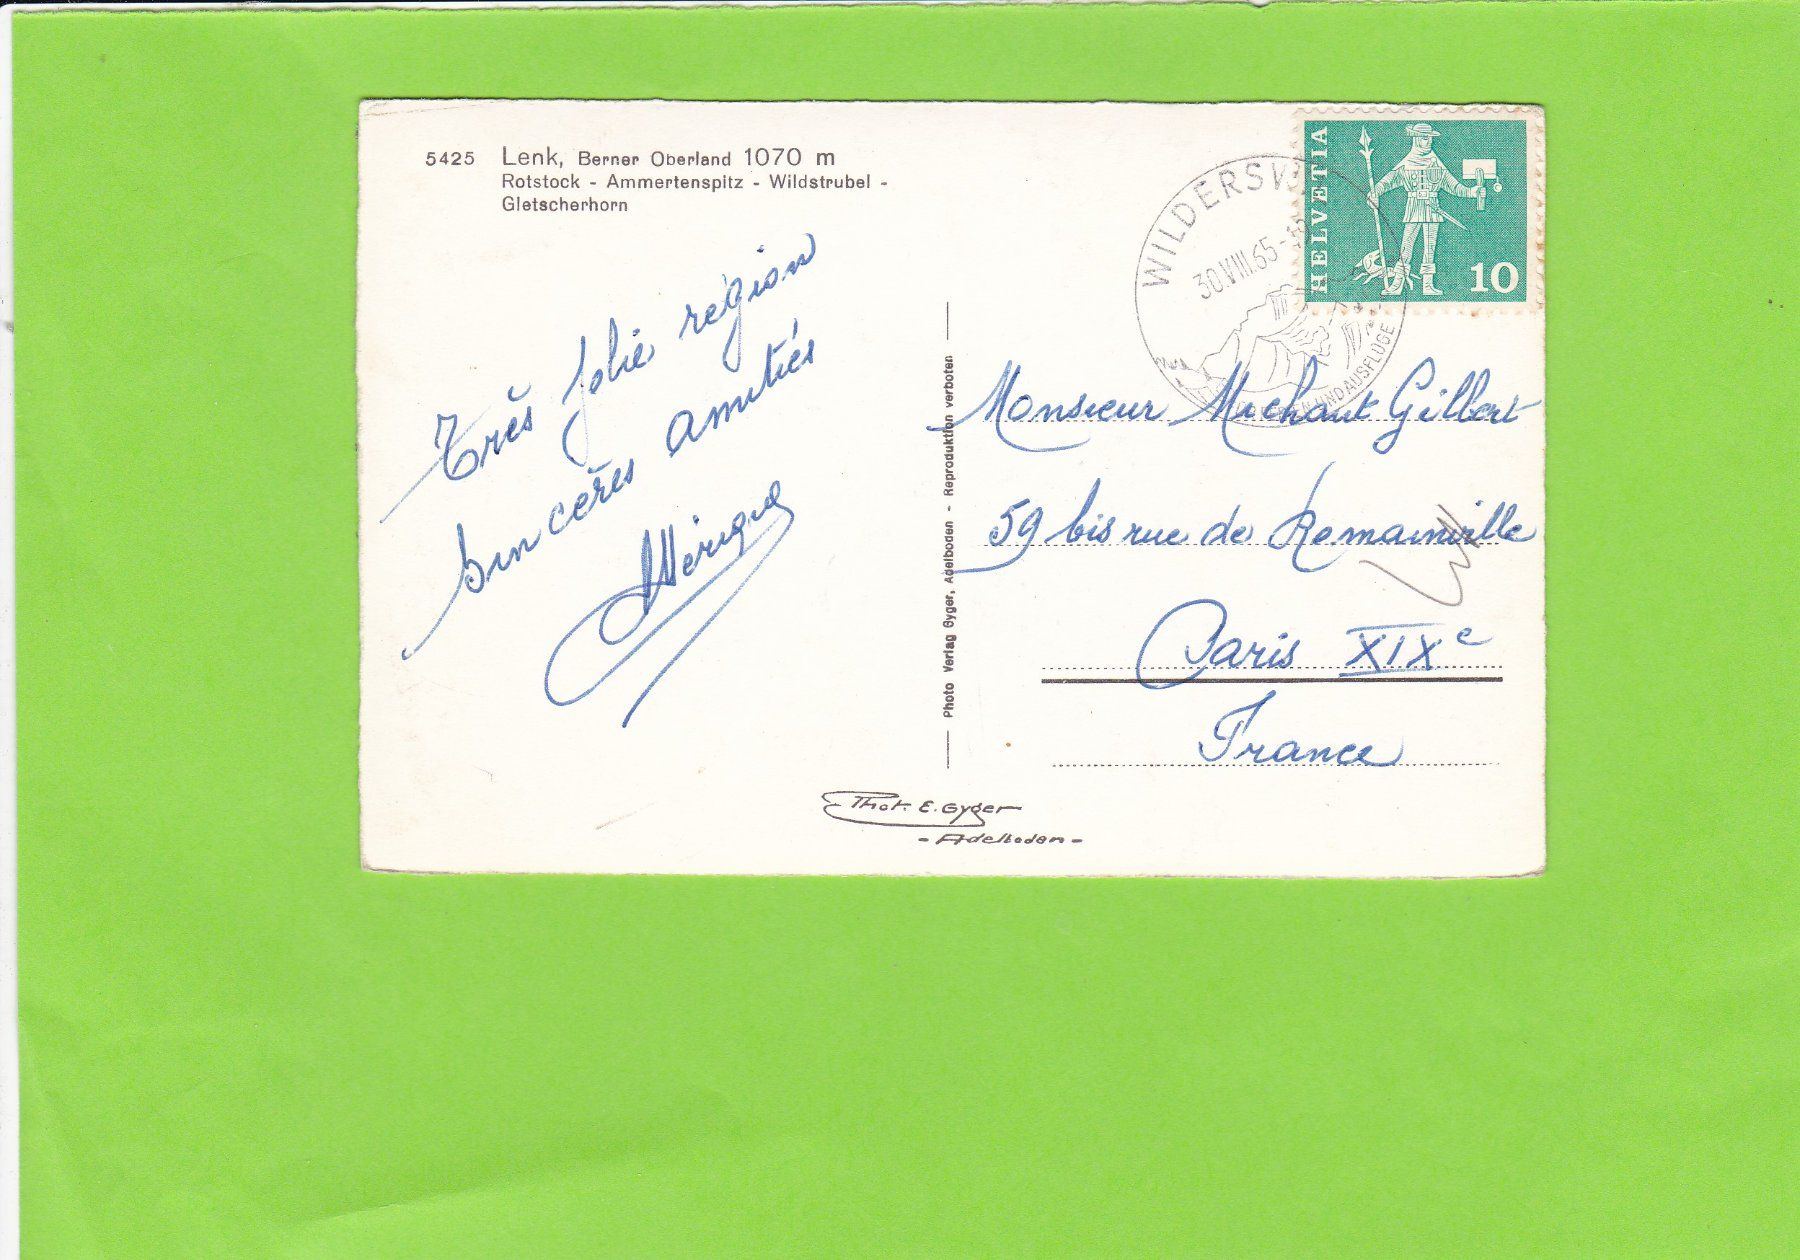 5425 Lenk, Berner Oberland 1070 m
Rotstock - Ammertenspitz - Wildstrubel -
Gletscherhorn
Très jolie région
Sincères amitiés
WILDERSW
30.VIII.65-
UND AUSFLÜGE
HELVETIA
10
Monsieur Michaut Gilbert
59 bis rue de Romainville
Paris XIXe
France
Photo Verlag Gyger, Adelboden - Reproduktion verboten
Phot. E. Gyger
- Adelboden -